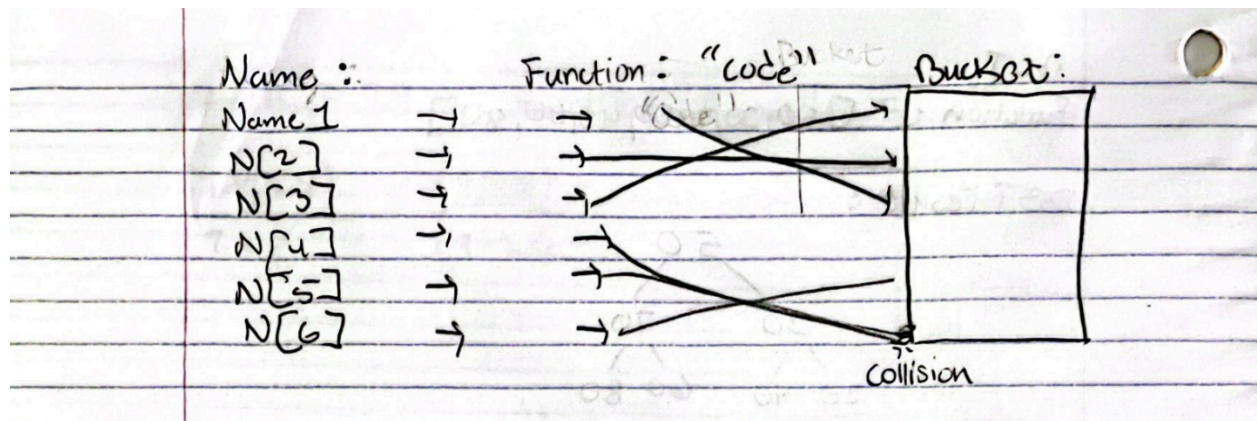 Name: Function: "Code" Bucket:
Name 1 → → "Code"
N[2] → →
N[3] → →
N[4] → →
N[5] → →
N[6] → →
Collision